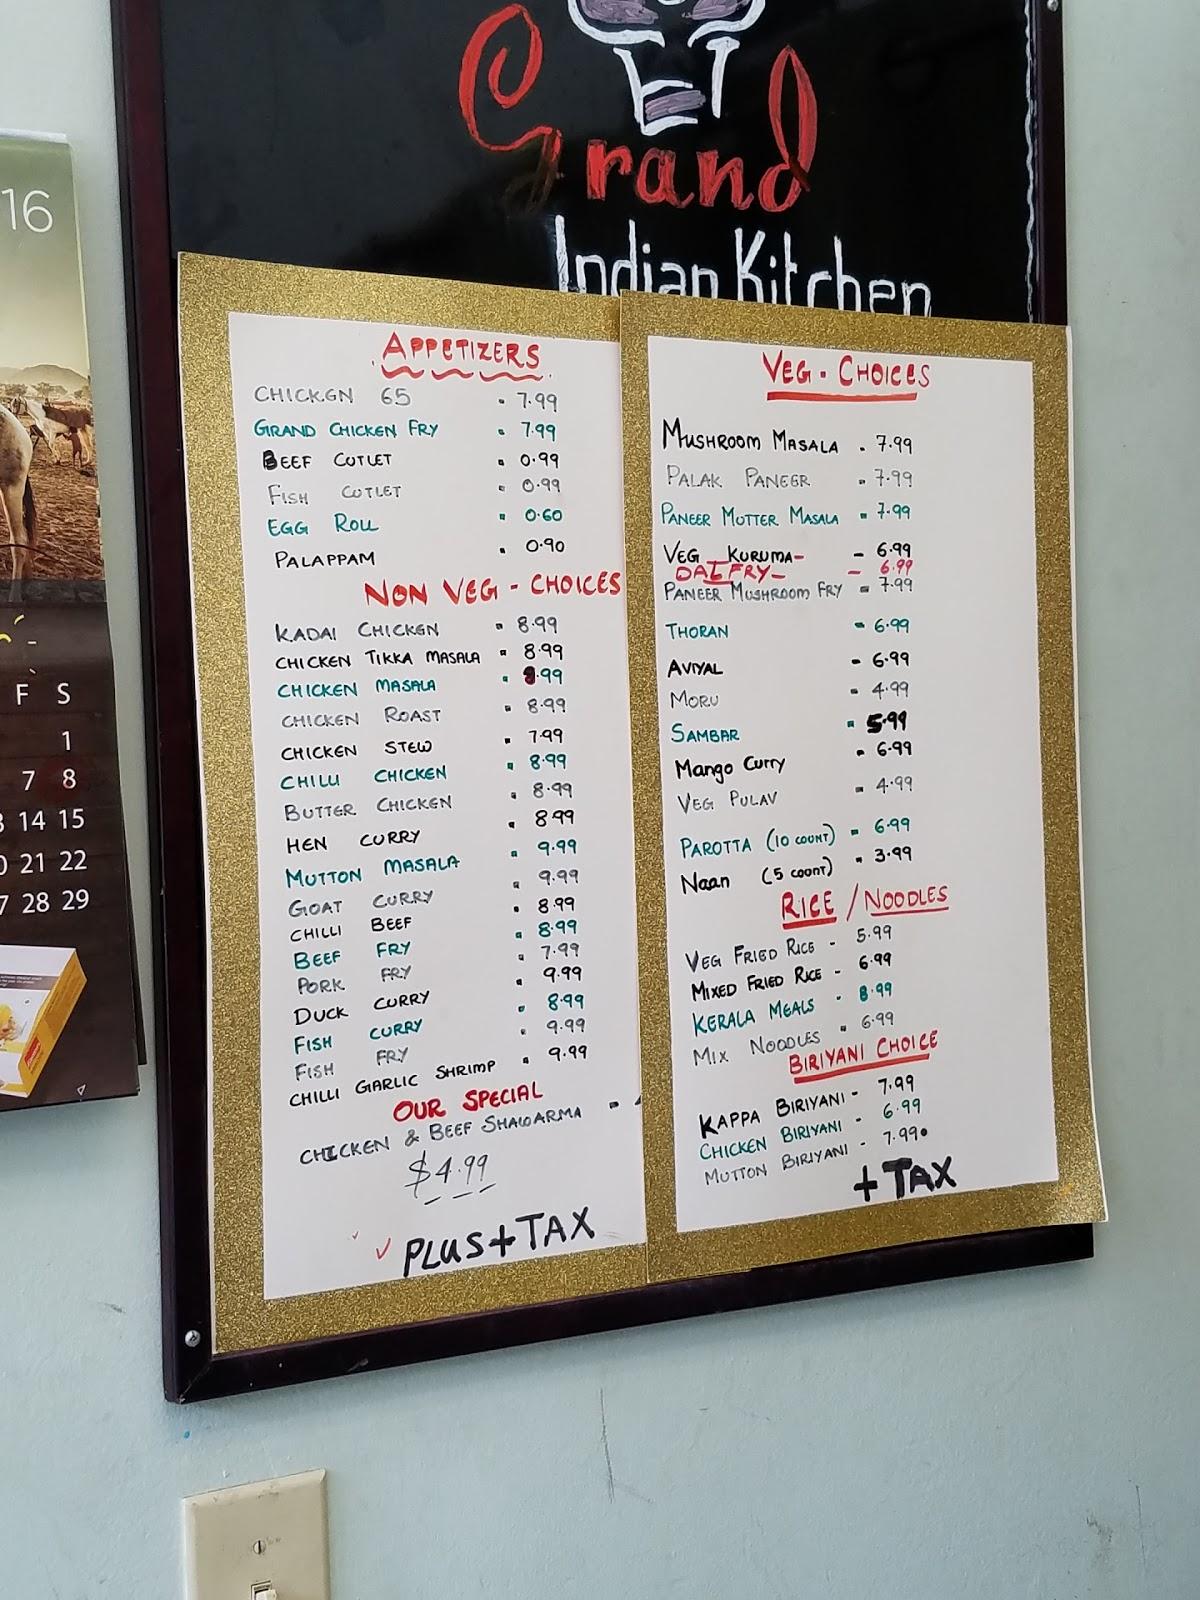 16
F S
1
7 8
14 15
21 22
28 29
Grand
Indian Kitchen
APPETIZERS
CHICKEN 65 - 7.99
GRAND CHICKEN FRY - 7.99
BEEF CUTLET - 0.99
FISH CUTLET - 0.99
EGG ROLL - 0.60
PALAPPAM - 0.90
NON VEG - CHOICES
KADAI CHICKEN - 8.99
CHICKEN TIKKA MASALA - 8.99
CHICKEN MASALA - 8.99
CHICKEN ROAST - 8.99
CHICKEN STEW - 7.99
CHILLI CHICKEN - 8.99
BUTTER CHICKEN - 8.99
HEN CURRY - 8.99
MUTTON MASALA - 9.99
GOAT CURRY - 9.99
CHILLI BEEF - 8.99
BEEF FRY - 8.99
PORK FRY - 7.99
DUCK CURRY - 9.99
FISH CURRY - 8.99
FISH FRY - 9.99
CHILLI GARLIC SHRIMP - 9.99
OUR SPECIAL
CHICKEN & BEEF SHAWARMA -
$4.99
PLUS+TAX
VEG - CHOICES
MUSHROOM MASALA - 7.99
PALAK PANEER - 7.99
PANEER MUTTER MASALA - 7.99
VEG KURUMA - - 6.99
DAL FRY - - 6.99
PANEER MUSHROOM FRY - 7.99
THORAN - 6.99
AVIYAL - 6.99
MORU - 4.99
SAMBAR - 5.99
Mango Curry - 6.99
VEG PULAV - 4.99
PAROTTA (10 COUNT) - 6.99
Naan (5 COUNT) - 3.99
RICE / NOODLES
VEG FRIED RICE - 5.99
MIXED FRIED RICE - 6.99
KERALA MEALS - 8.99
MIX NOODLES - 6.99
BIRIYANI CHOICE
KAPPA BIRIYANI - 7.99
CHICKEN BIRIYANI - 6.99
MUTTON BIRIYANI - 7.99
+ TAX